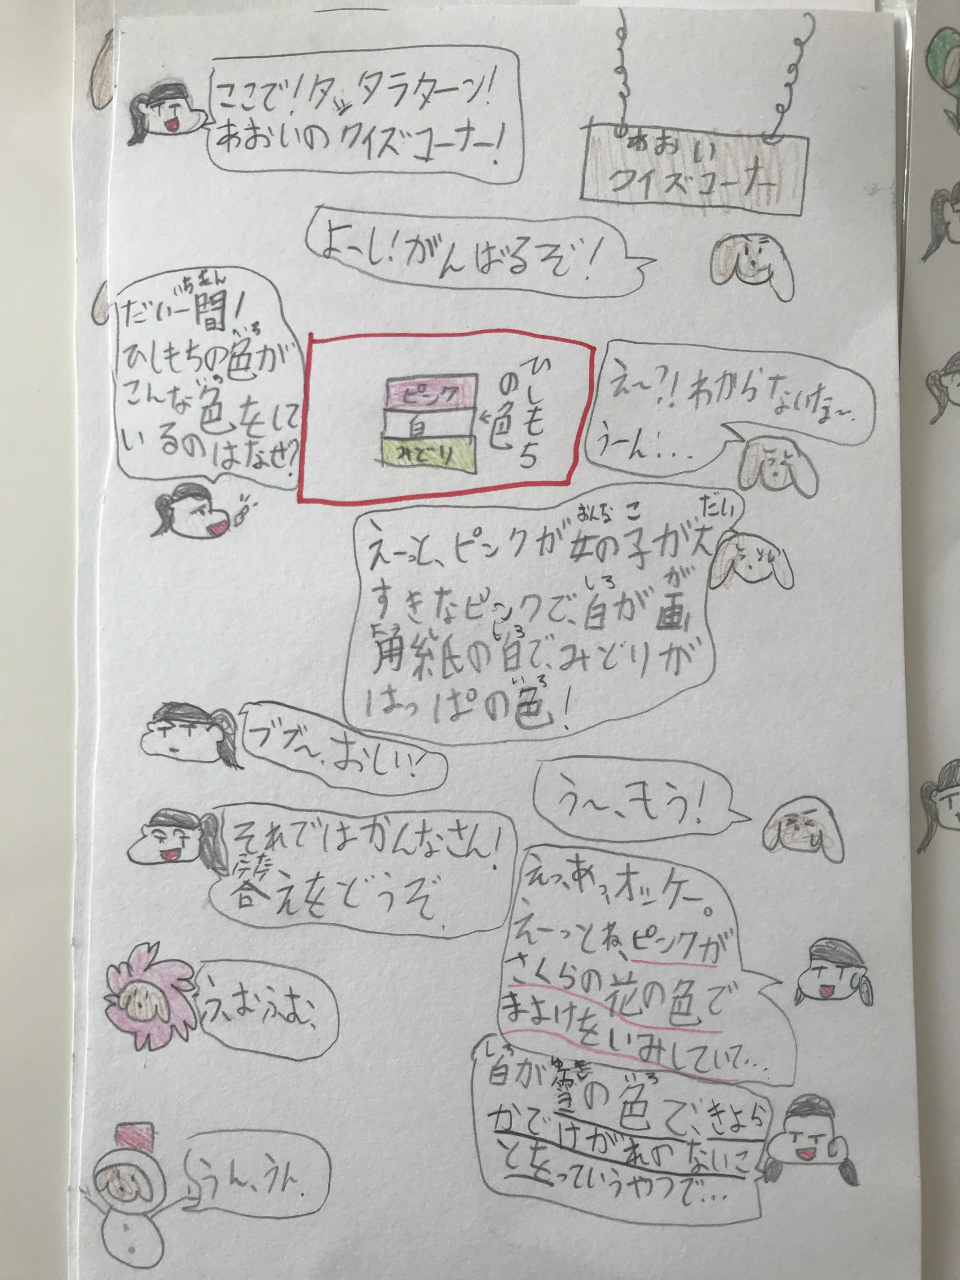 ここで!タッタラターン!
あおいのクイズコーナー!
あおい
クイズコーナー
よーっし!がんばるぞ!
いちもん
だい一問!
いろ
ひしもちの色が
いろ
こんな色をして
いるのはなぜ?
ひしもち
の色
ピンク
白
みどり
え〜?!わからないなぁ〜。
うーん...
おんな こ だい
えーっと、ピンクが女の子が大
しろ が
すきなピンクで、白が画
ようし しろ
用紙の白で、みどりが
いろ
はっぱの色!
ブブ〜。おしい!
う〜、もう!
それではかんなさん!
こた
答えをどうぞ。
えっ、あっ、オッケー。
えーっとね、ピンクが
さくらの花の色で
まよけをいみしていて...
しろ ゆき いろ
白が雪の色で、きよら
かでけがれのないこ
とをっていうやつで...
ふむふむ、
うん、うん。